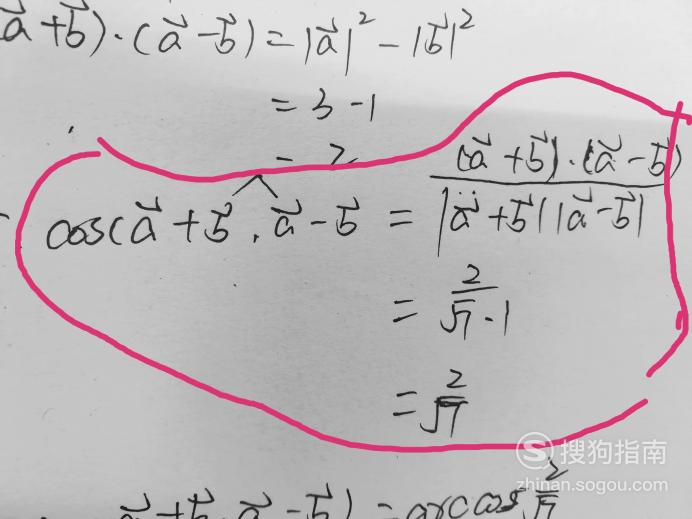 (a⃗+b⃗)·(a⃗-b⃗)=|a⃗|²-|b⃗|²
=3-1
=2
cos(a⃗+b⃗,a⃗-b⃗)=(a⃗+b⃗)·(a⃗-b⃗)/|a⃗+b⃗||a⃗-b⃗|
=2/√7·1
=2/√7
a⃗+b⃗,a⃗-b⃗)=arccos2/√7
搜狗指南
zhinan.sogou.com